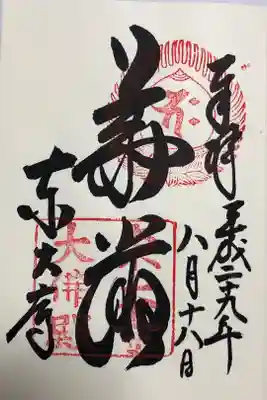 奉拝
平成二九年
八月十八日
華厳
東大寺
大佛殿